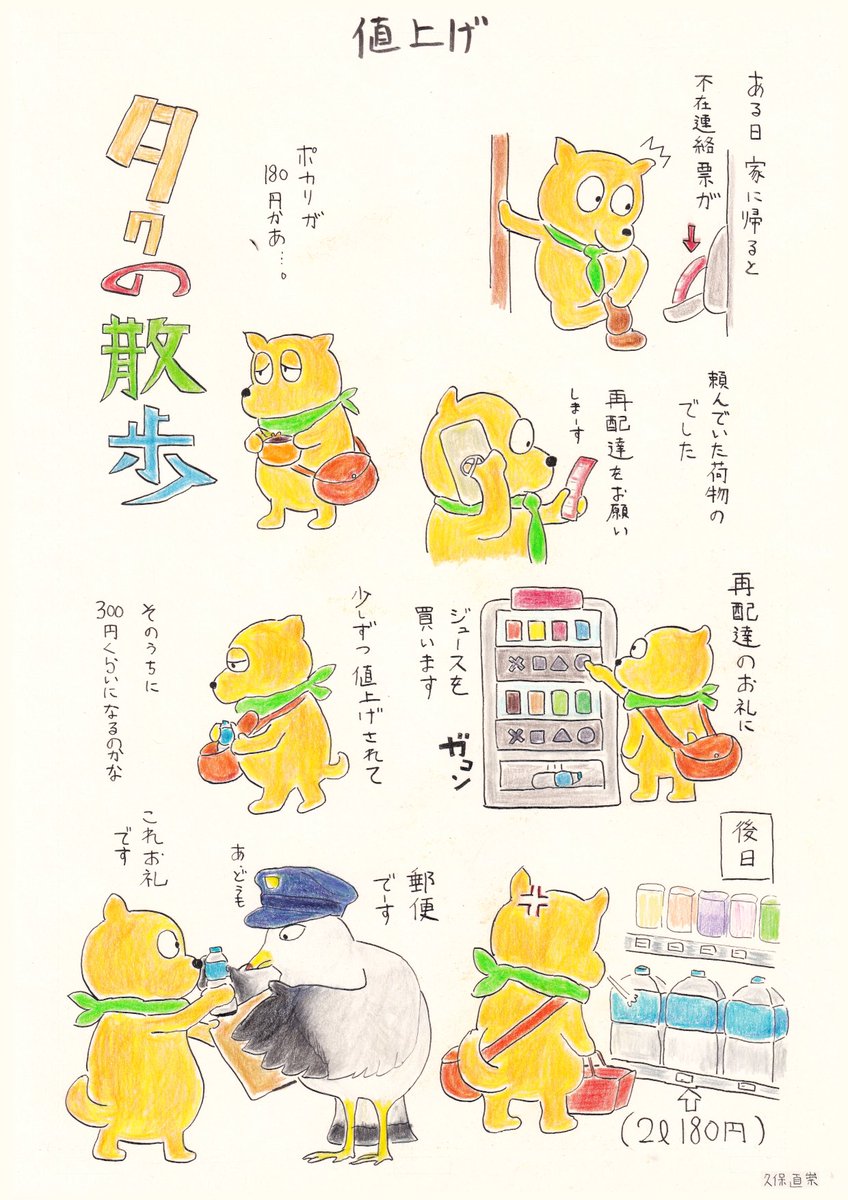 値上げ
タクの散歩
ある日 家に帰ると
不在連絡票が
ポカリが
180円かあ…。
頼んでいた荷物の
でした
再配達をお願い
しまーす
再配達のお礼に
ジュースを
買います
ガコン
少しずつ値上げされて
そのうちに
300円くらいになるのかな
郵便
でーす
あ、どうも
これお礼
です
後日
(2ℓ 180円)
久保直